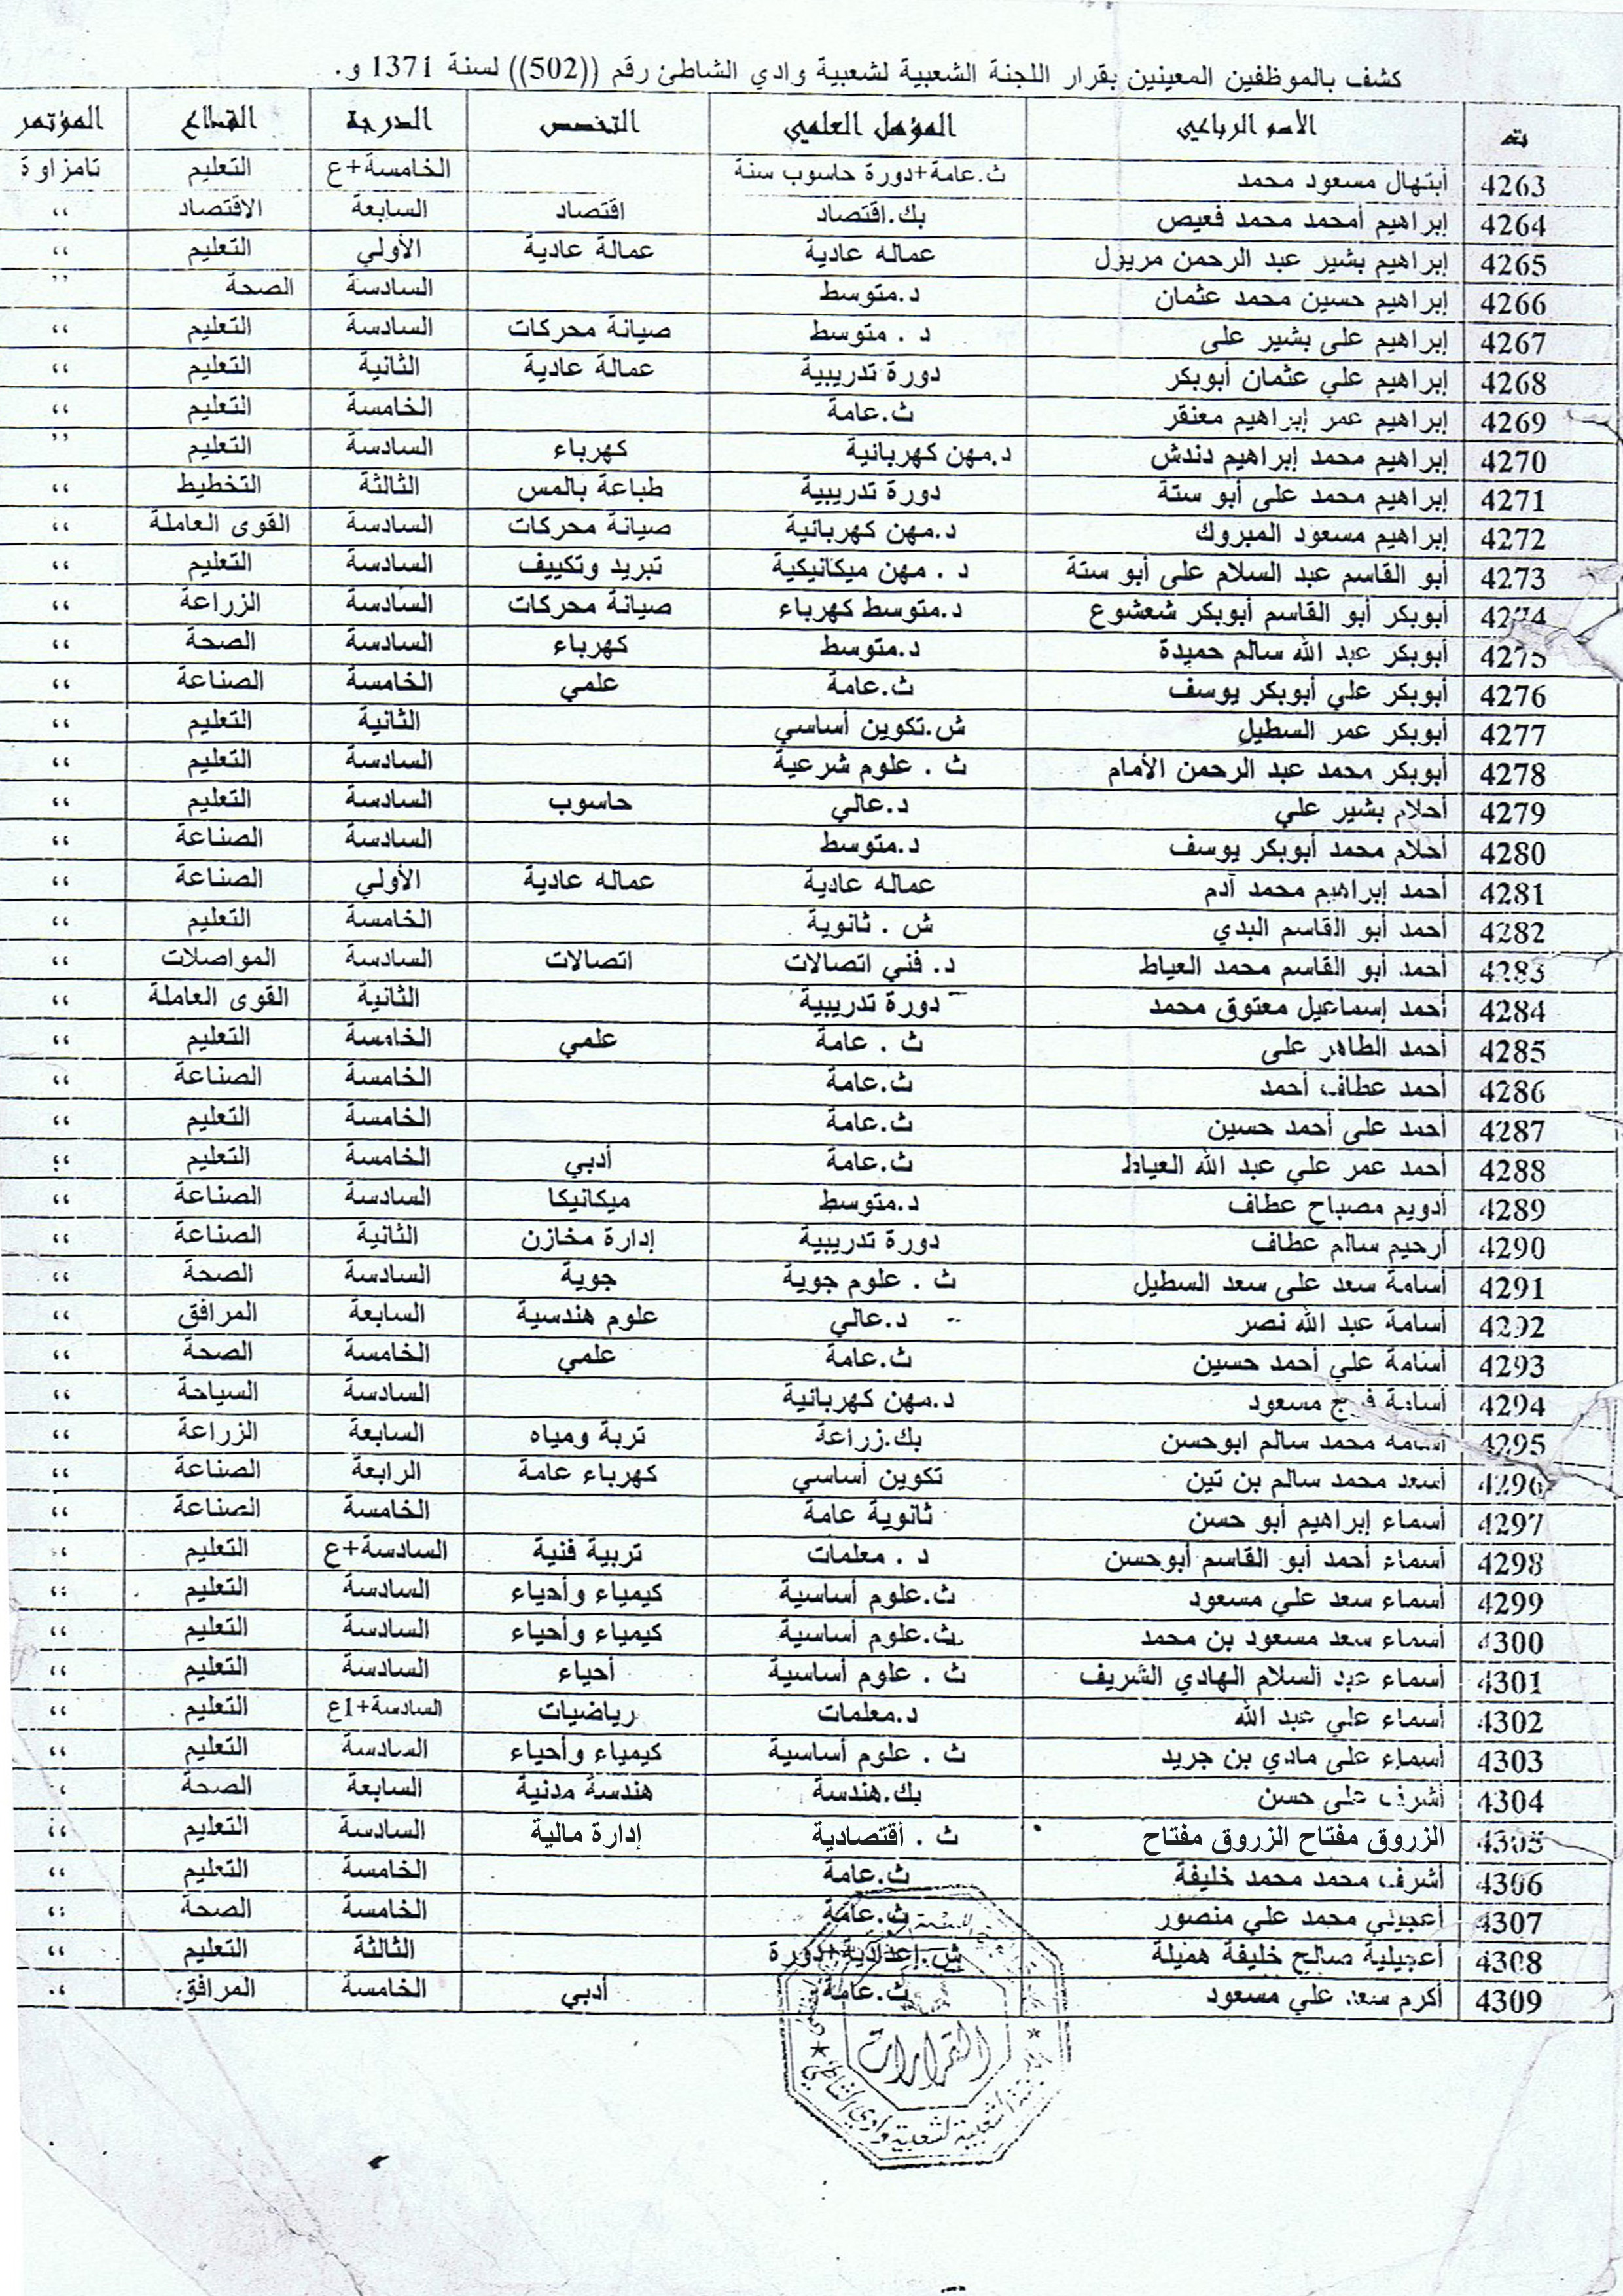 كشف بالموظفين المعينين بقرار اللجنة الشعبية لشعبية وادي الشاطئ رقم ((502)) لسنة 1371 و.
ته الأسم الرباعي المؤهل العلمي التخصص الدرجة القطاع المؤتمر
4263 أبتهال مسعود محمد ث.عامة+دورة حاسوب سنة الخامسة+ع التعليم تامزاوة
4264 إبراهيم أمحمد محمد فعيص بك.اقتصاد اقتصاد السابعة الاقتصاد ،،
4265 إبراهيم بشير عبد الرحمن مريزل عماله عادية عمالة عادية الأولي التعليم ،،
4266 إبراهيم حسين محمد عثمان د.متوسط السادسة الصحة ,,
4267 إبراهيم على بشير على د . متوسط صيانة محركات السادسة التعليم ،،
4268 إبراهيم علي عثمان أبوبكر دورة تدريبية عمالة عادية الثانية التعليم ،،
4269 إبراهيم عمر إبراهيم معنقر ث.عامة الخامسة التعليم ،،
4270 إبراهيم محمد إبراهيم دندش د.مهن كهربائية كهرباء السادسة التعليم ,,
4271 إبراهيم محمد على أبو ستة دورة تدريبية طباعة بالمس الثالثة التخطيط ،،
4272 إبراهيم مسعود المبروك د.مهن كهربائية صيانة محركات السادسة القوى العاملة ،،
4273 أبو القاسم عبد السلام على أبو ستة د . مهن ميكانيكية تبريد وتكييف السادسة التعليم ،،
4274 أبوبكر أبو القاسم أبوبكر شعشوع د.متوسط كهرباء صيانة محركات السادسة الزراعة ،،
4275 أبوبكر عبد الله سالم حميدة د.متوسط كهرباء السادسة الصحة ،،
4276 أبوبكر علي أبوبكر يوسف ث.عامة علمي الخامسة الصناعة ،،
4277 أبوبكر عمر السطيل ش.تكوين أساسي الثانية التعليم ،،
4278 أبوبكر محمد عبد الرحمن الأمام ث . علوم شرعية السادسة التعليم ،،
4279 أحلام بشير علي د.عالي حاسوب السادسة التعليم ،،
4280 أحلام محمد أبوبكر يوسف د.متوسط السادسة الصناعة ،،
4281 أحمد إبراهيم محمد آدم عماله عادية عماله عادية الأولي الصناعة ،،
4282 أحمد أبو القاسم البدي ش . ثانوية الخامسة التعليم ،،
4283 أحمد أبو القاسم محمد العياط د. فني اتصالات اتصالات السادسة المواصلات ،،
4284 أحمد إسماعيل معتوق محمد دورة تدريبية الثانية القوى العاملة ،،
4285 أحمد الطاهر على ث . عامة علمي الخامسة التعليم ،،
4286 أحمد عطاف أحمد ث.عامة الخامسة الصناعة ،،
4287 أحمد على أحمد حسين ث.عامة الخامسة التعليم ،،
4288 أحمد عمر علي عبد الله العياط ث.عامة أدبي الخامسة التعليم ،،
4289 أدويم مصباح عطاف د.متوسط ميكانيكا السادسة الصناعة ،،
4290 أرحيم سالم عطاف دورة تدريبية إدارة مخازن الثانية الصناعة ،،
4291 أسامة سعد على سعد السطيل ث . علوم جوية جوية السادسة الصحة ،،
4292 أسامة عبد الله نصر د.عالي علوم هندسية السابعة المرافق ،،
4293 أسامة علي أحمد حسين ث.عامة علمي الخامسة الصحة ،،
4294 أسامة فرج مسعود د.مهن كهربائية السادسة السياحة ،،
4295 أسامة محمد سالم ابوحسن بك.زراعة تربة ومياه السابعة الزراعة ،،
4296 أسعد محمد سالم بن تين تكوين أساسي كهرباء عامة الرابعة الصناعة ،،
4297 أسماء إبراهيم أبو حسن ثانوية عامة الخامسة الصناعة ،،
4298 أسماء أحمد أبو القاسم أبوحسن د . معلمات تربية فنية السادسة+ع التعليم ،،
4299 أسماء سعد علي مسعود ث.علوم أساسية كيمياء وأحياء السادسة التعليم ،،
4300 أسماء سعد مسعود بن محمد ث.علوم أساسية كيمياء وأحياء السادسة التعليم ،،
4301 أسماء عبد السلام الهادي الشريف ث . علوم أساسية أحياء السادسة التعليم ،،
4302 أسماء علي عبد الله د.معلمات رياضيات السادسة+1ع التعليم ،،
4303 أسماء على مادي بن جريد ث . علوم أساسية كيمياء وأحياء السادسة التعليم ،،
4304 أشرف على حسن بك.هندسة هندسة مدنية السابعة الصحة ،
4305 الزروق مفتاح الزروق مفتاح ث . أقتصادية إدارة مالية السادسة التعليم ،،
4306 أشرف محمد محمد خليفة ث.عامة الخامسة التعليم ،،
4307 أعجيلي محمد علي منصور ث.عامة الخامسة الصحة ،،
4308 أعجيلية صالح خليفة هميلة ش.إعدادية+دورة الثالثة التعليم ،،
4309 أكرم سعد علي مسعود ث.عامة أدبي الخامسة المرافق ،،
القرارات
الشعبية لشعبية وادي الشاطئ